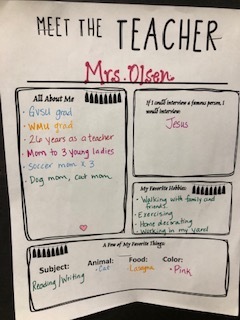 MEET THE TEACHER
Mrs. Olsen
All About Me
• GVSU grad
• WMU grad
• 26 years as a teacher
• Mom to 3 young ladies
• Soccer mom x 3
• Dog mom, cat mom
If I could interview a famous person, I
would interview:
Jesus
My Favorite Hobbies:
• Walking with family and
friends
• Exercising
• Home decorating
• Working in my yard!
A Few of My Favorite Things:
Subject: Animal: Food: Color:
Reading/Writing • Cat Lasagna • Pink